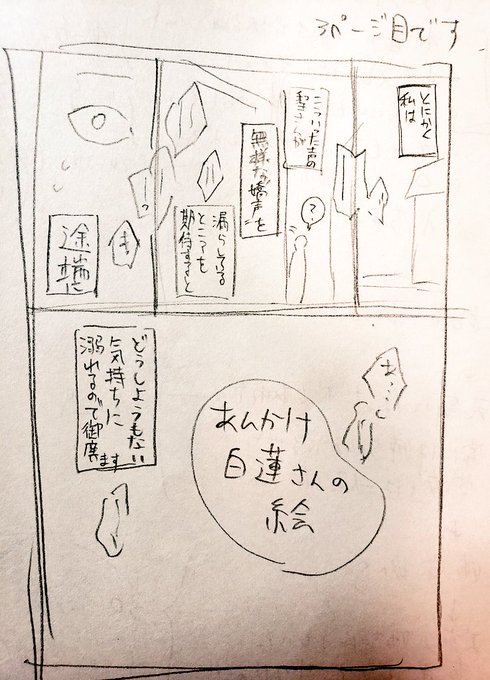 3ページ目です
とにかく
私は
こういった声の
聖さんが
?
無様な嬌声を
漏らしている
ところを
期待すると
も
途端に
あ…
どうしようもない
気持ちに
溺れるので御座
ます
あんかけ
白蓮さんの
絵